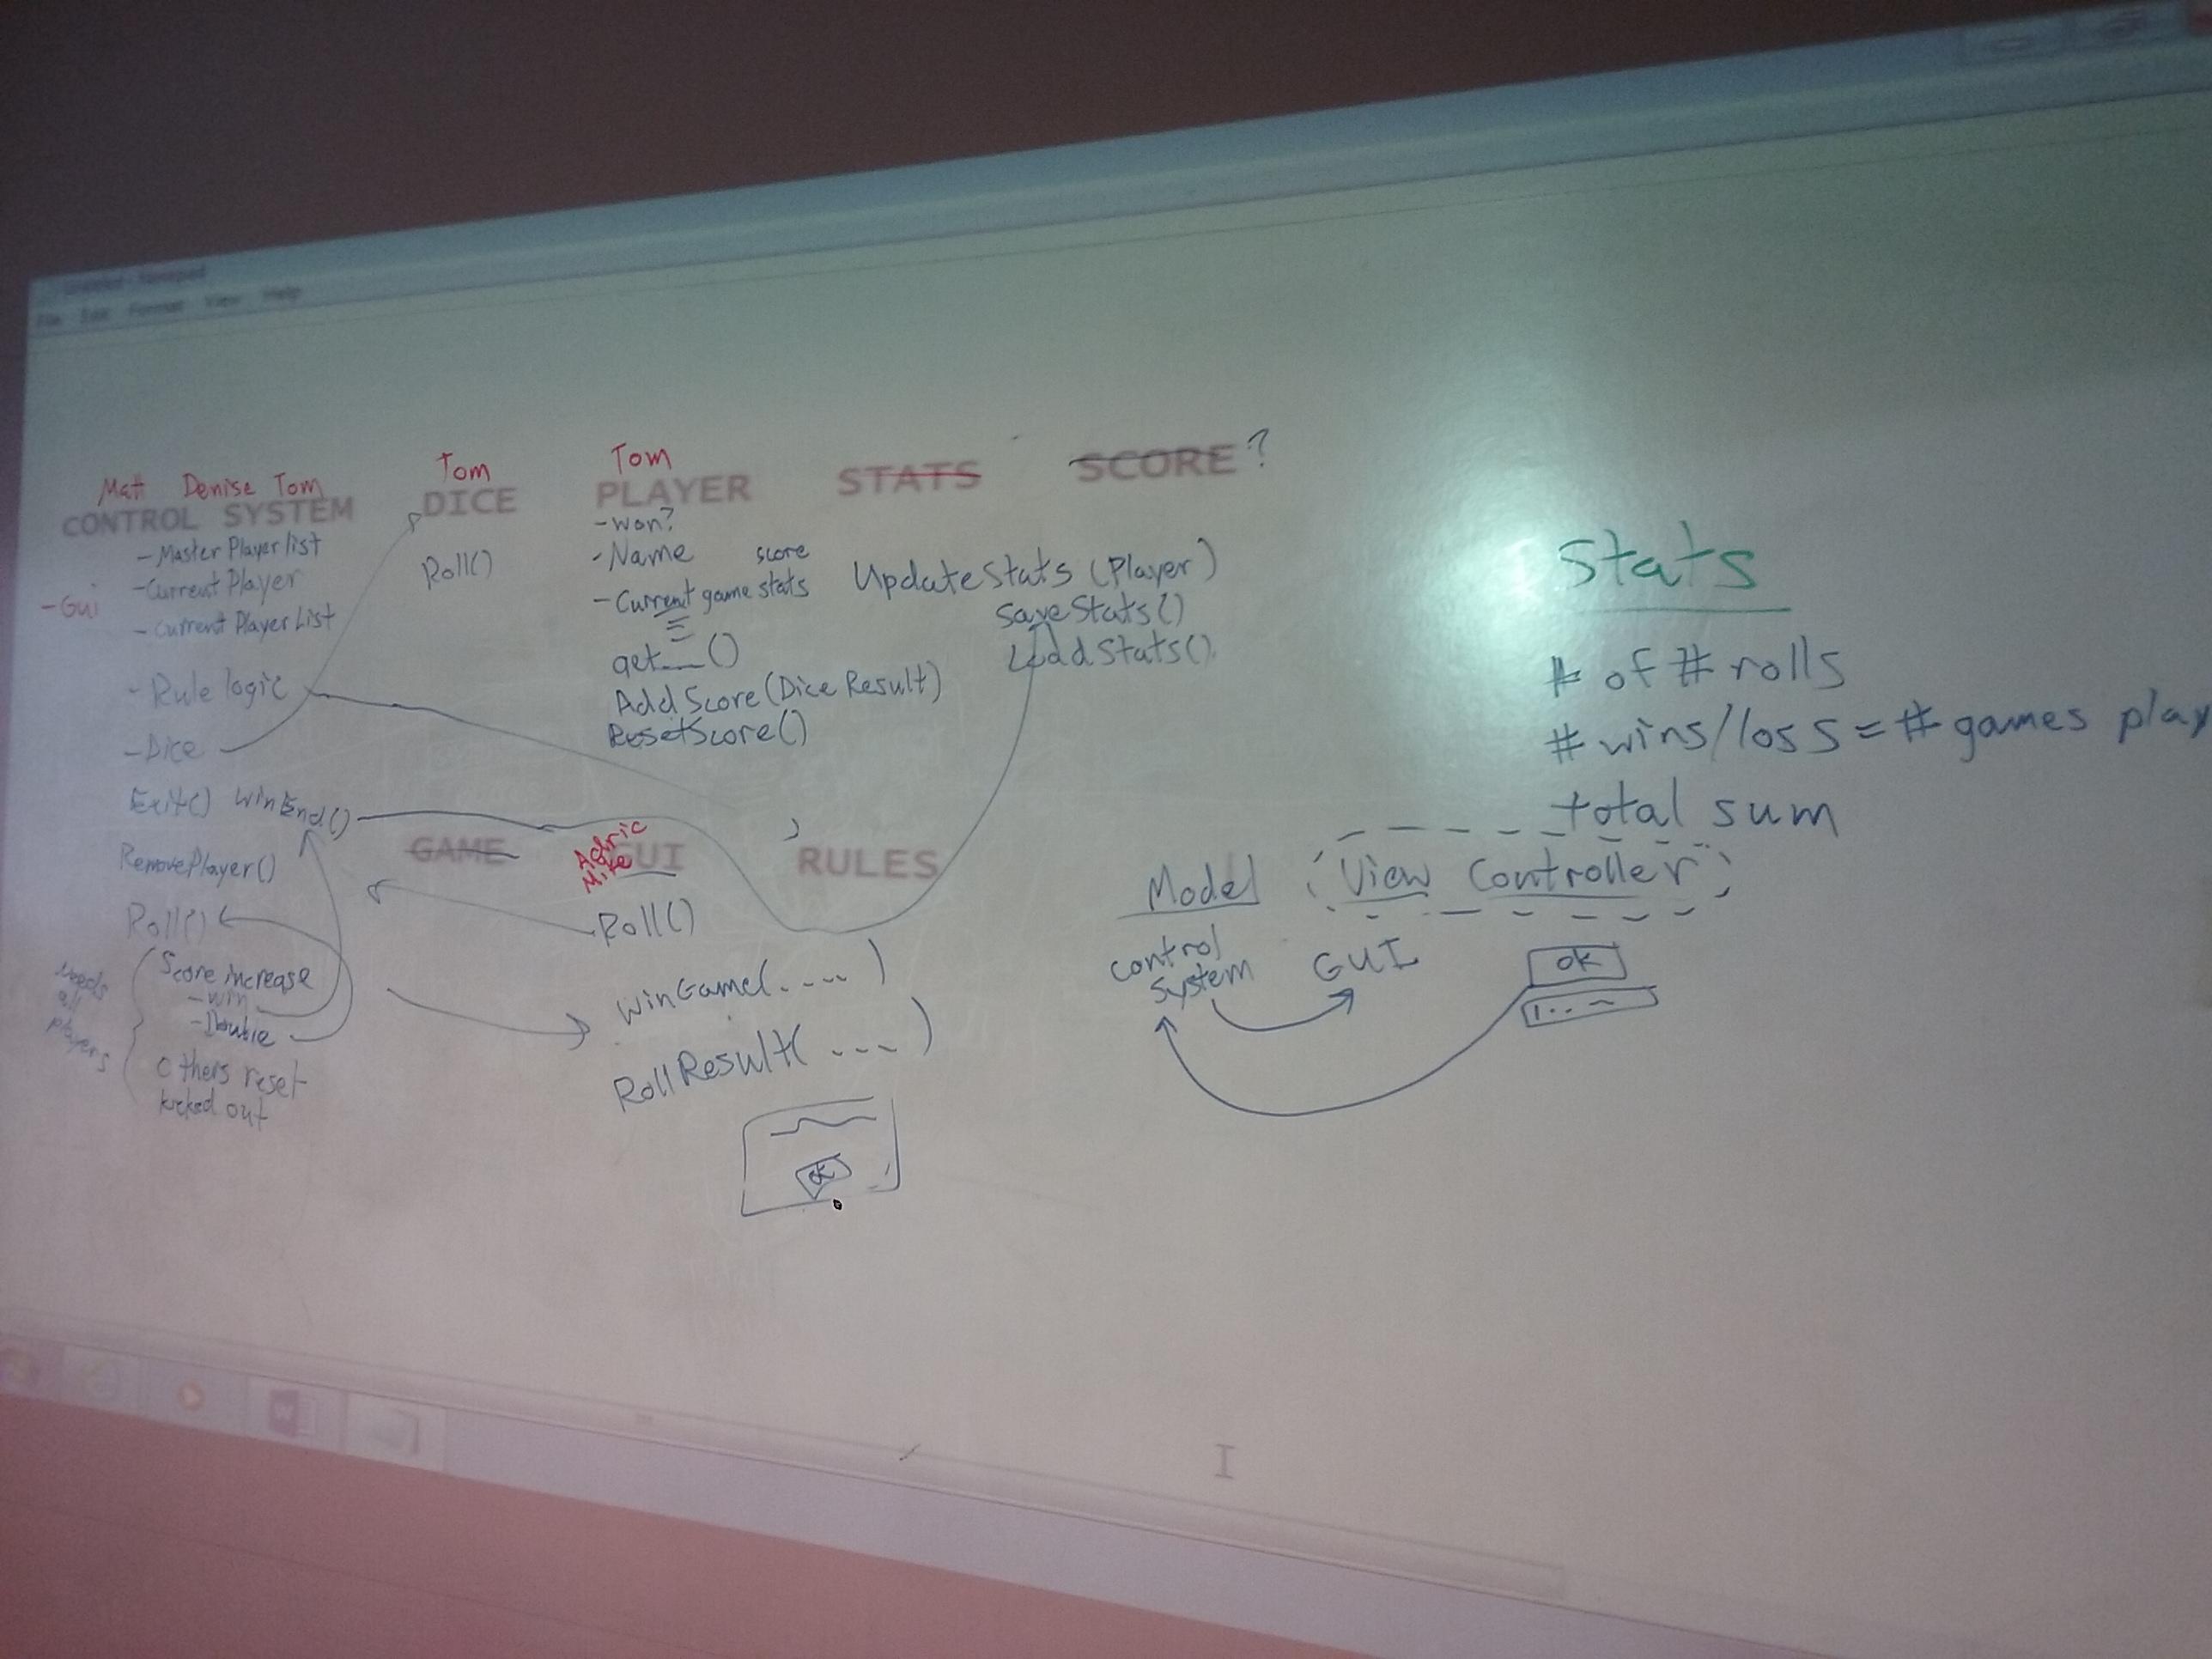 Untitled - Notepad
File Edit Format View Help
Matt Denise Tom
CONTROL SYSTEM
- Master Player list
- Current Player
- Gui
- Current Player List
- Rule logic
- Dice
Exit() WinEnd()
RemovePlayer()
Roll()
Needs all players
Score increase
- win
- Double
Others reset
kicked out
Tom
DICE
Roll()
Tom
PLAYER
- won?
- Name score
- Current game stats
get__()
AddScore(Dice Result)
ResetScore()
STATS
SCORE?
UpdateStats (Player)
SaveStats()
LoadStats()
GAME
Adric
Mike
GUI
Roll()
WinGame(....)
RollResult(....)
OK
RULES
Stats
# of # rolls
# wins/loss = # games play
total sum
Model View Controller
Control System
GUI
OK